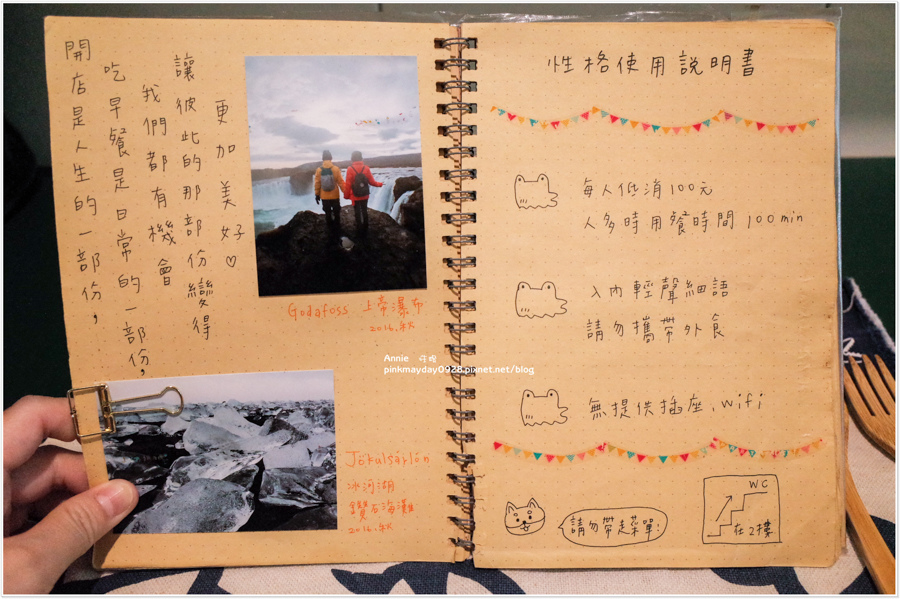 開店是人生的一部份，
吃早餐是日常的一部份，
我們都有機會
讓彼此的那部份變得
更加美好♡
Godafoss 上帝瀑布
2016.秋
Jökulsárlón
冰河湖
鑽石海灘
2016.秋
Annie
pinkmayday0928.pixnet.net/blog
性格使用說明書
每人低消100元
人多時用餐時間 100 min
入內輕聲細語
請勿攜帶外食
無提供插座、wifi
請勿帶走菜單!
WC
在2樓